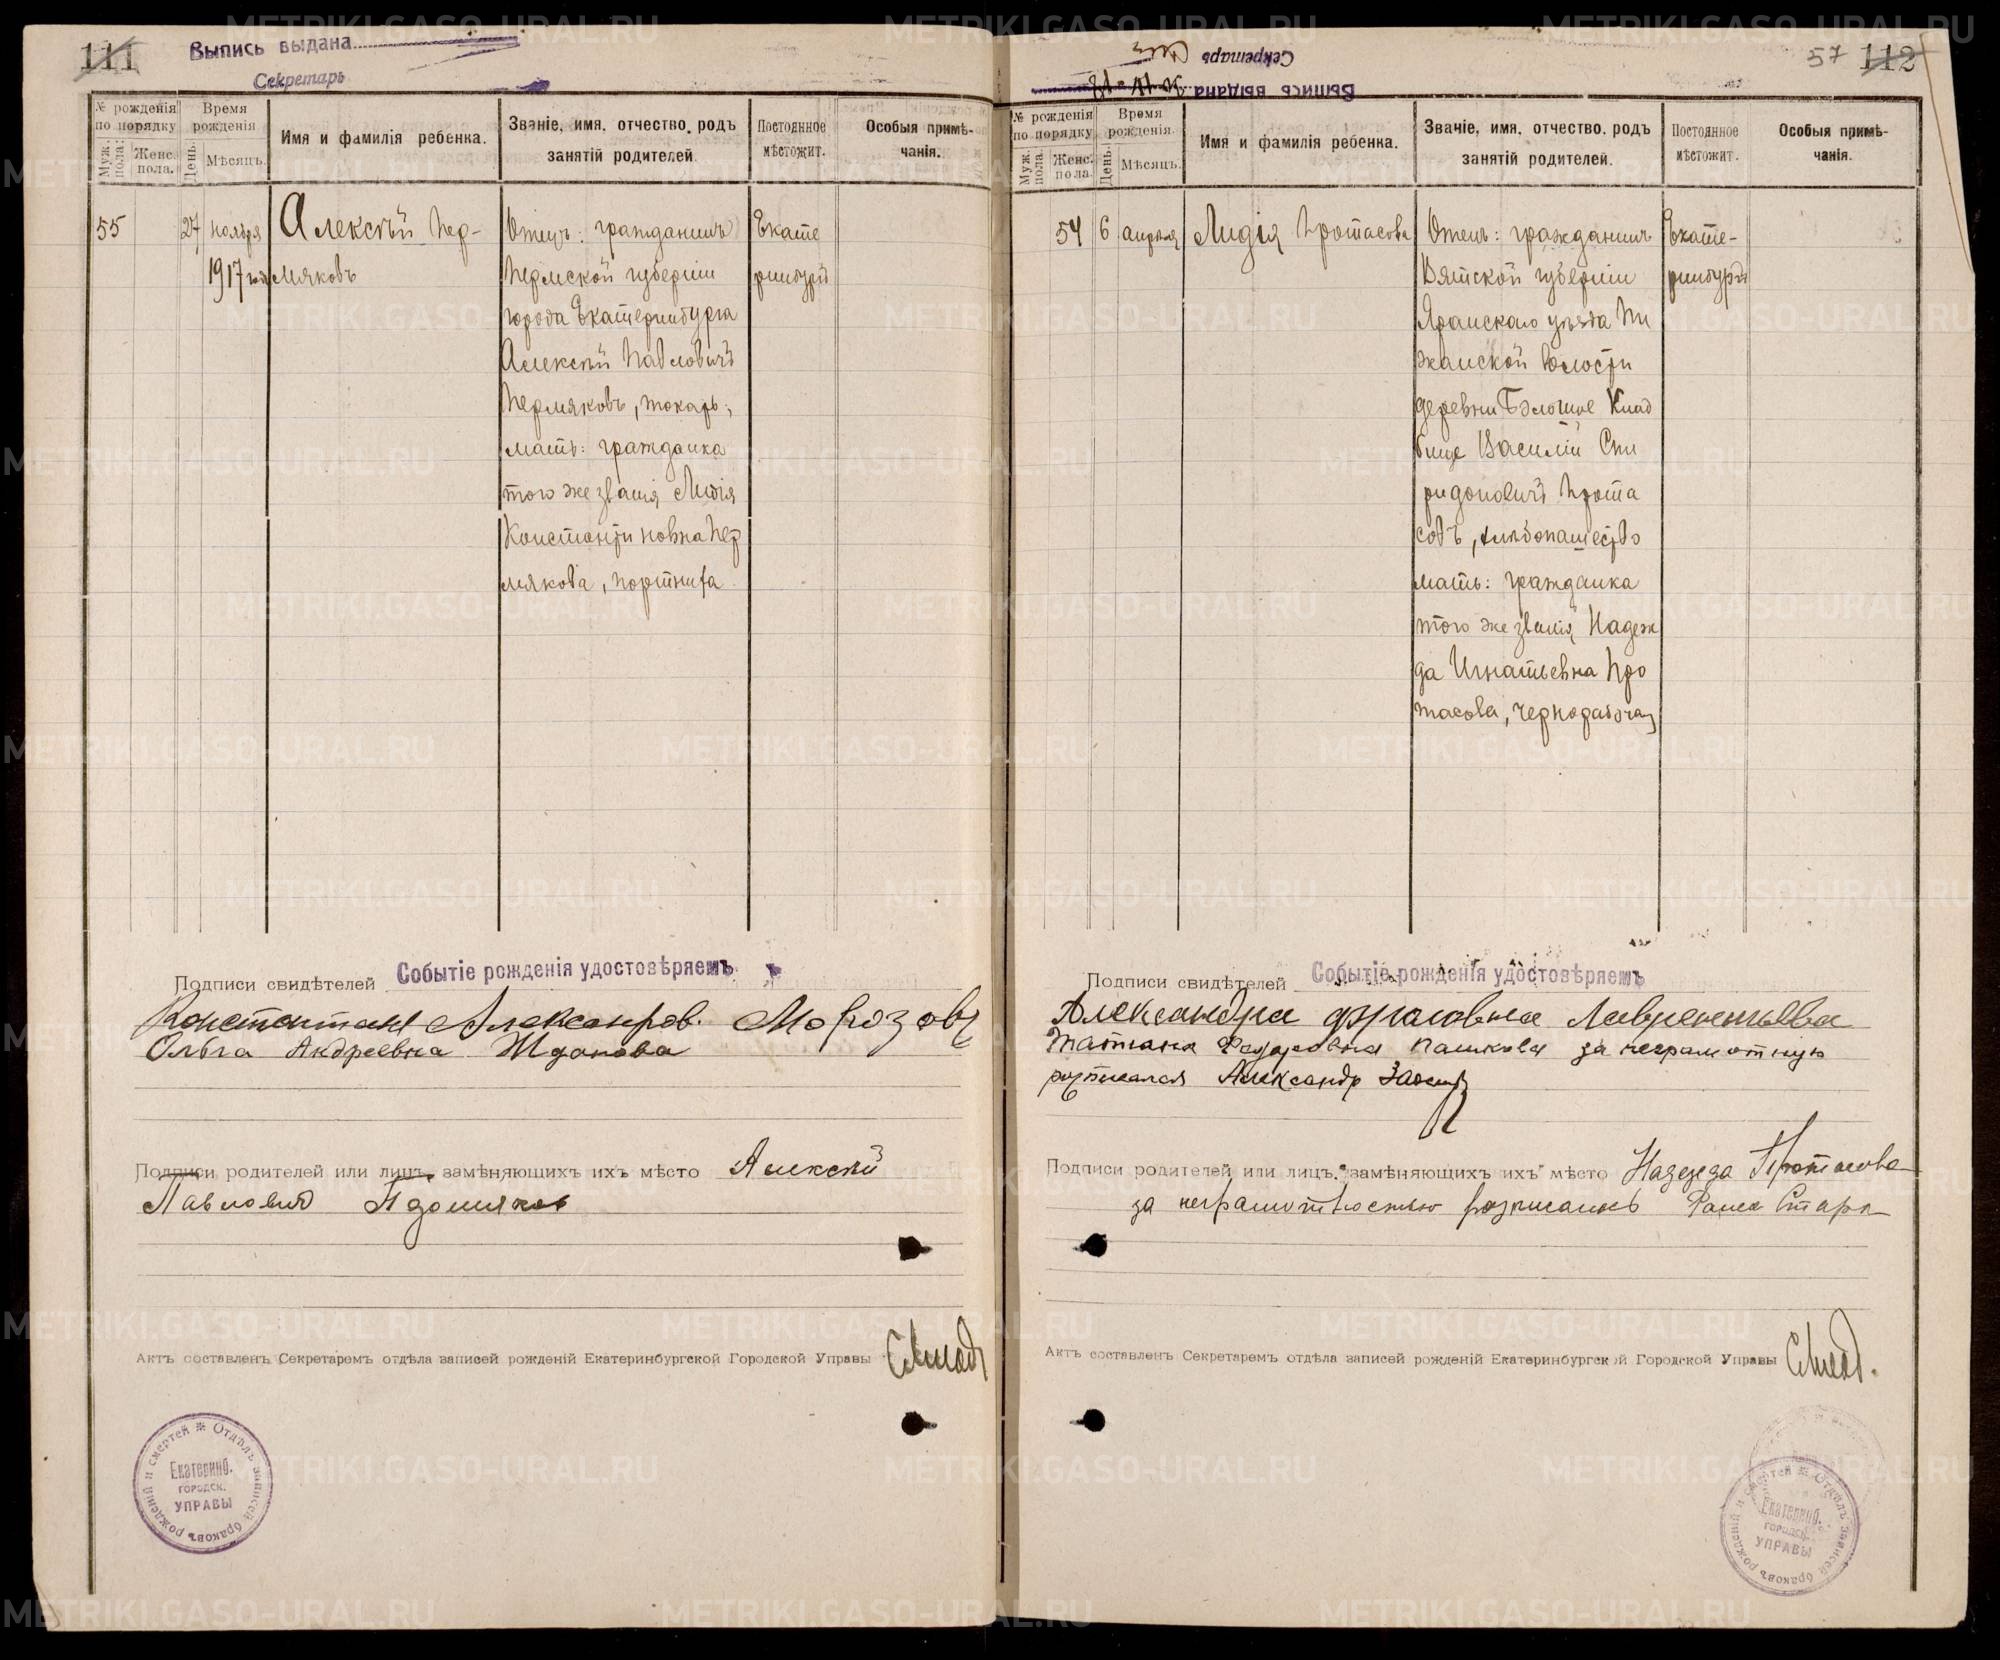 111
Выпись выдана
Секретарь
№ рожденія по порядку
Муж. пола:
Женс. пола.
Время рожденія
День.
Мѣсяцъ.
Имя и фамилія ребенка.
Званіе, имя, отчество, родъ
занятій родителей.
Постоянное
мѣстожит.
Особыя примѣ-
чанія.
55
27 ноября
1917 год
Алексѣй Пер-
мяковъ
Отецъ: гражданинъ
Пермской губерніи
города Екатеринбурга
Алексѣй Павловичъ
Пермяковъ, токарь;
мать: гражданка
того же званія Лидія
Константиновна Пер
мякова, портниха
Екате
ринбургъ
Подписи свидѣтелей Событіе рожденія удостовѣряемъ
Константин Александров. Морозовъ
Ольга Андреевна Жданова
Подписи родителей или лицъ, замѣняющихъ ихъ мѣсто Алексѣй
Павлович
Актъ составленъ Секретаремъ отдѣла записей рожденій Екатеринбургской Городской Управы
Отдѣлъ записей браковъ рожденій и смертей
Екатеринб.
ГОРОДСК.
УПРАВЫ
57 112
Секретарь
Выпись выдана
№ рожденія по порядку
Муж. пола.
Женс. пола.
Время рожденія.
День.
Мѣсяцъ.
Имя и фамилія ребенка.
Званіе, имя, отчество, родъ
занятій родителей.
Постоянное
мѣстожит.
Особыя примѣ-
чанія.
54 6 апрѣля
Лидія Протасова
Отецъ: гражданинъ
Вятской губерніи
Яранскаго уѣзда Пи
жанской волости
деревни Клад
бище Василій Спи
ридоновичъ Прота
совъ, хлѣбопашество
мать: гражданка
того же званія Надеж
да Игнатьевна Про
тасова, чернорабочая
Екате-
ринбургъ
Подписи свидѣтелей Событіе рожденія удостовѣряемъ
Александра Фроловна Лаврентьева
Татиана Федоровна Пашкова за неграмотную
росписался Александр
Подписи родителей или лицъ, замѣняющихъ ихъ мѣсто Надежда Протасова
за неграмотностью
Актъ составленъ Секретаремъ отдѣла записей рожденій Екатеринбургской Городской Управы
Отдѣлъ записей браковъ рожденій и смертей
Екатеринб.
ГОРОДСК.
УПРАВЫ
METRIKI.GASO-URAL.RU